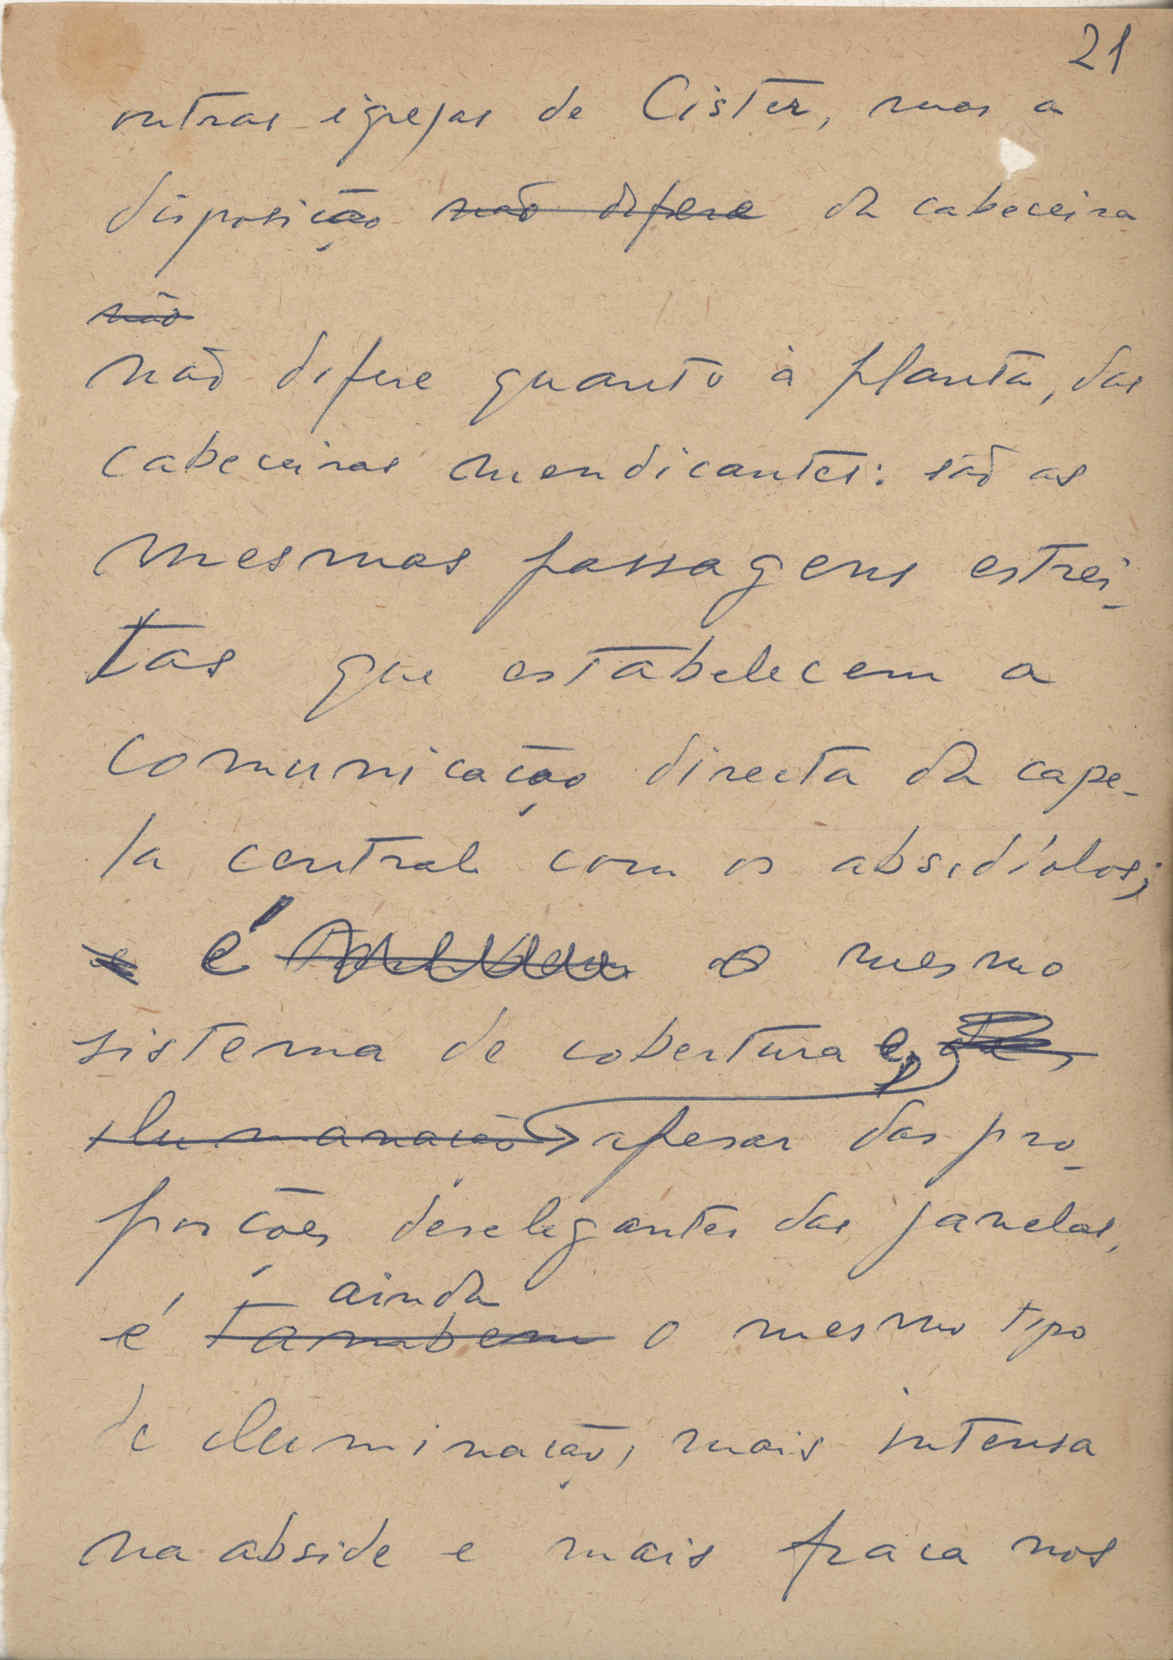 21
outras igrejas de Cister, mas a
disposição não difere da cabeceira
não
não difere quanto à planta, das
cabeceiras mendicantes: são as
mesmas passagens estrei-
tas que estabelecem a
comunicação directa da cape-
la central com os absidíolos;
e é o mesmo
sistema de cobertura e,
iluminação apesar das pro-
porções deselegantes das janelas,
ainda
é também o mesmo tipo
de iluminação, mais intensa
na abside e mais fraca nos